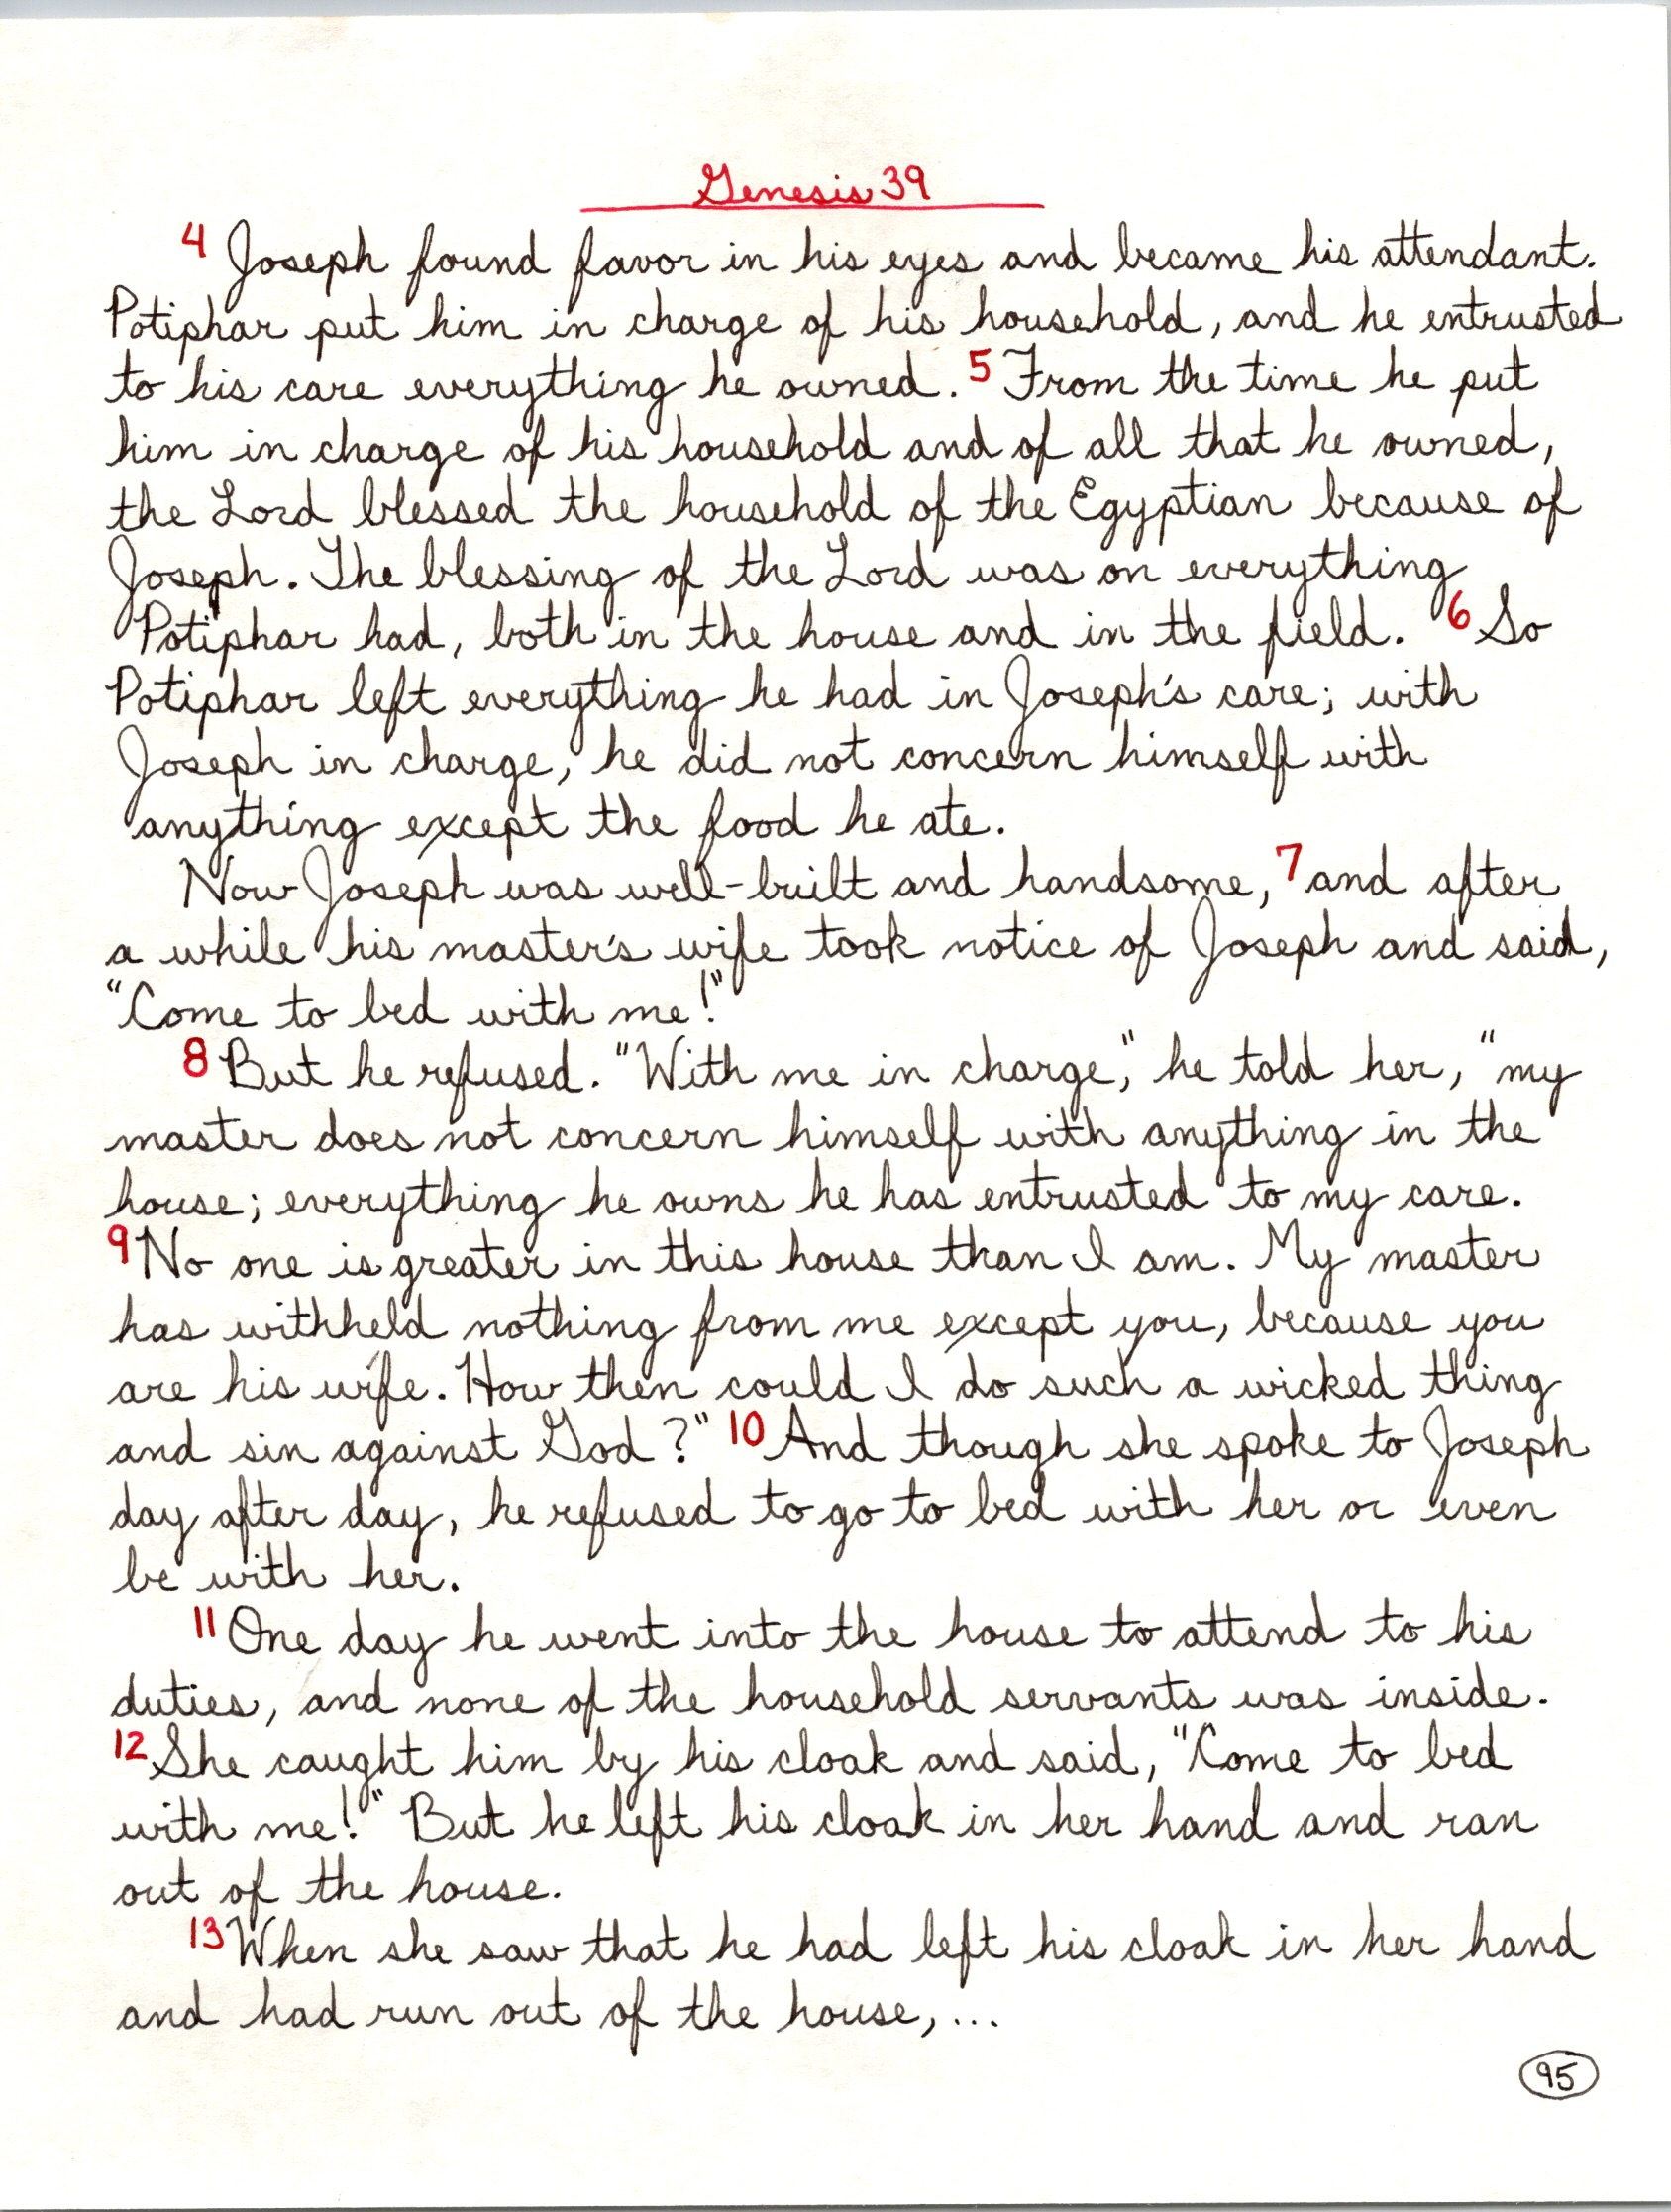 Genesis 39
4 Joseph found favor in his eyes and became his attendant.
Potiphar put him in charge of his household, and he entrusted
to his care everything he owned. 5 From the time he put
him in charge of his household and of all that he owned,
the Lord blessed the household of the Egyptian because of
Joseph. The blessing of the Lord was on everything
Potiphar had, both in the house and in the field. 6 So
Potiphar left everything he had in Joseph's care; with
Joseph in charge, he did not concern himself with
anything except the food he ate.
Now Joseph was well-built and handsome, 7 and after
a while his master's wife took notice of Joseph and said,
"Come to bed with me!"
8 But he refused. "With me in charge," he told her, "my
master does not concern himself with anything in the
house; everything he owns he has entrusted to my care.
9 No one is greater in this house than I am. My master
has withheld nothing from me except you, because you
are his wife. How then could I do such a wicked thing
and sin against God?" 10 And though she spoke to Joseph
day after day, he refused to go to bed with her or even
be with her.
11 One day he went into the house to attend to his
duties, and none of the household servants was inside.
12 She caught him by his cloak and said, "Come to bed
with me!" But he left his cloak in her hand and ran
out of the house.
13 When she saw that he had left his cloak in her hand
and had run out of the house,...
95